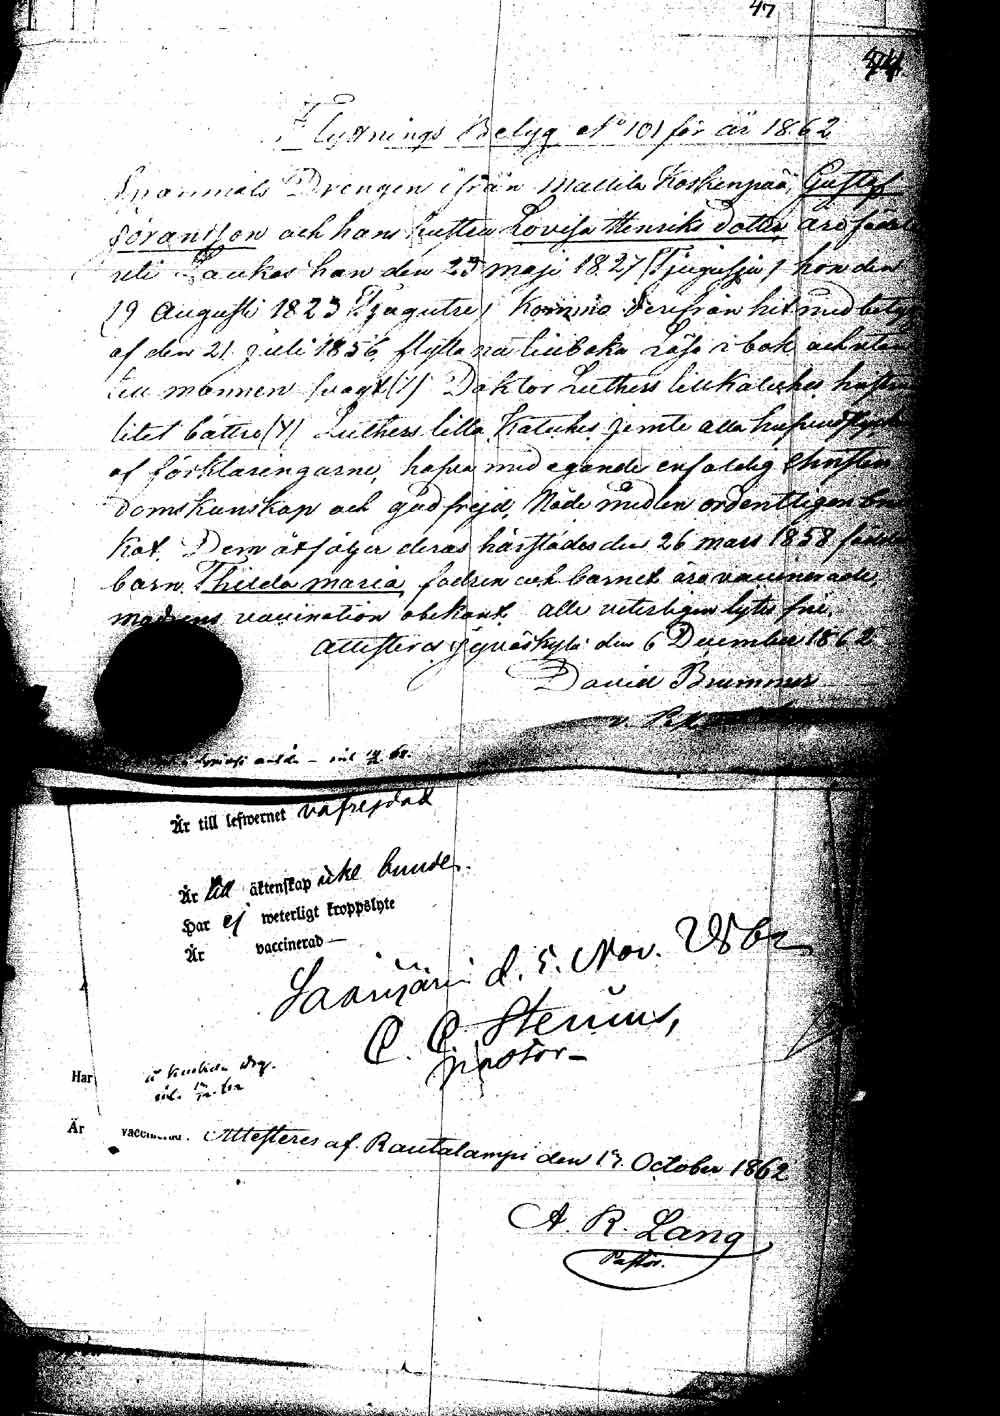 47
Flyttnings Betyg No 101 för år 1862
Drengen ifrån Mattila Koskenpää, Gustaf
Göransson och hans hustru Lovisa Henriks dotter äro födde
uti Laukas han den 29 maji 1827 (Tjugusju) hon den
19 Augusti 1823 (Tjugutre) komna derifrån hit med betyg
af den 21 juli 1856, flytta nu tillbaka läsa i bok och utan
till mannen svagt (1) Doktor Luthers lilla Kateches hustrun
litet bättre (4) Luthers lilla Kateches jemte alla
af förklaringarne, hafva med egande enfaldig Christen
domskunskap och god frejd, Nåde medlen ordentligen bru
kat. Dem åtföljer deras härstädes den 26 mars 1858 födde
barn Thilda Maria, fadren och barnet äro vaccinerade,
modrens vaccination obekant, alle veterligen lytes frie,
attesterar Jyväskylä den 6 December 1862
David Brummer
Är till lefwernet
Är till äktenskap icke bunden.
Har ej weterligt kroppslyte
Är vaccinerad —
d. 5. Nov. 1862
C. C. Stenius,
pastor —
Har
Är vaccinerad. Attesteres af. Rautalampi den 17. October 1862
A. R. Lang
Pastor.